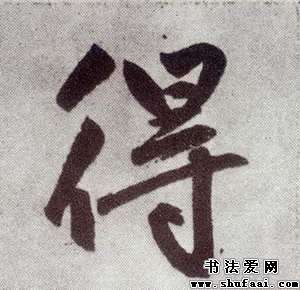 得
书法爱网
www.shufaai.com